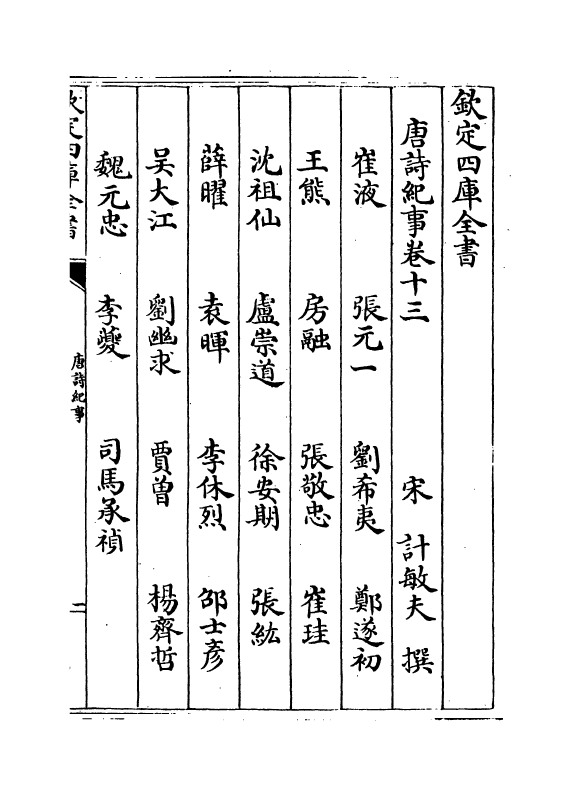 欽定四庫全書
唐詩紀事卷十三　宋　計敏夫　撰
崔液　張元一　劉希夷　鄭遂初
王熊　房融　張敬忠　崔珪
沈祖仙　盧崇道　徐安期　張紘
薛曜　袁暉　李休烈　邵士彦
吴大江　劉幽求　賈曾　楊齊哲
魏元忠　李夔　司馬承禎
欽定四庫全書　唐詩紀事　二